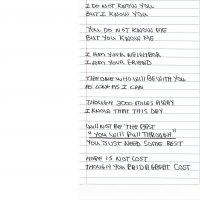 I DO NOT KNOW YOU
BUT I KNOW YOU
YOU DO NOT KNOW ME
BUT YOU KNOW ME
I AM YOUR NEIGHBOR
I AM YOUR FRIEND
THE ONE WHO WILL BE WITH YOU
AS LONG AS I CAN
THOUGH 3000 MILES AWAY
I KNOW THAT THIS DAY
WILL NOT BE THE BEST
"YOU WILL PULL THROUGH"
YOU JUST NEED SOME REST
HOPE IS NOT LOST
THOUGH YOU PAID A GREAT COST